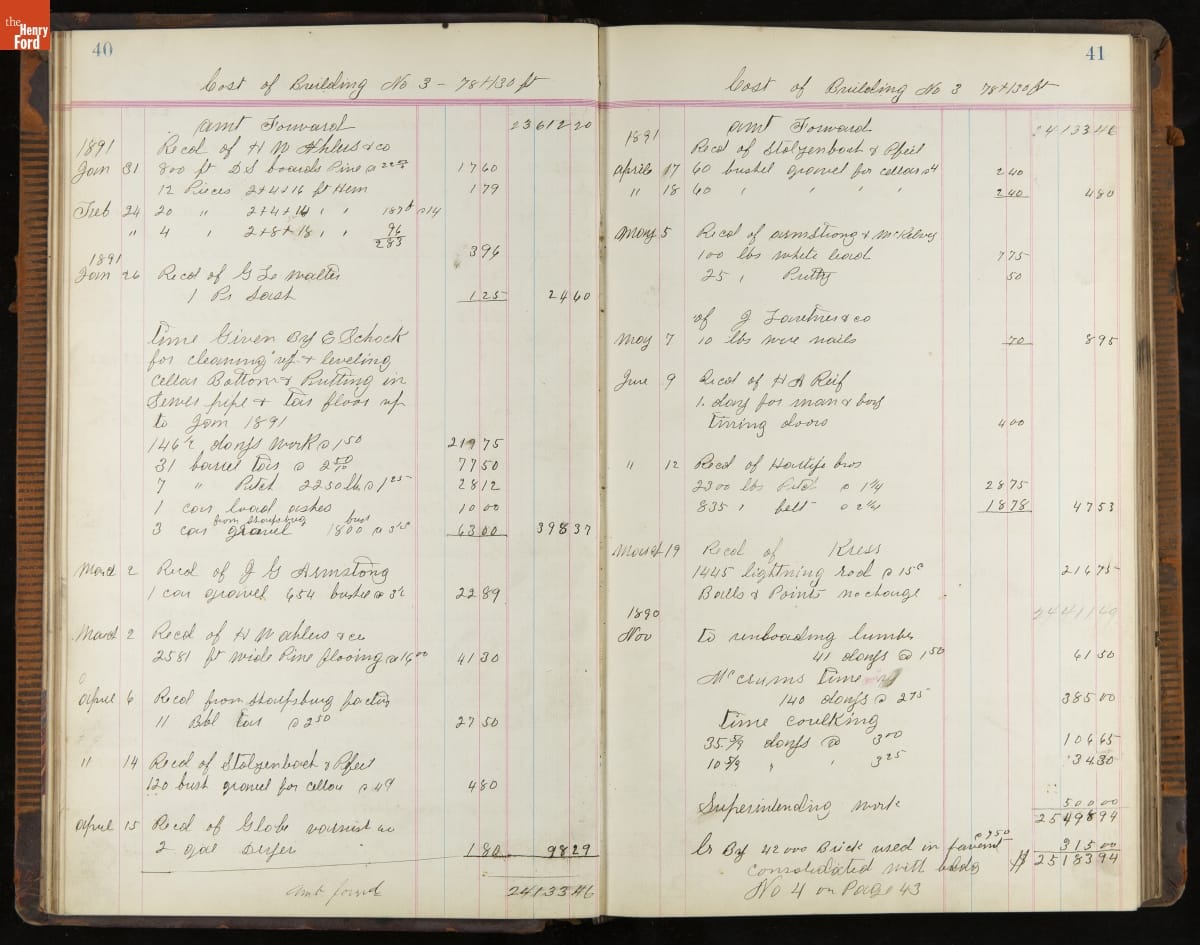 the Henry Ford
40
Cost of Building No 3 - 78+130 ft
amt Forward 23612 20
1891 Recd of H W Ahlers & co
Jan 31 800 ft D S boards Pine @ 22 00 17 60
12 Pieces 2+4+16 ft Hem 1 79
Feb 24 20 " 2+4+14 " " 187 @ 14
" 4 " 2+8+18 " " 96
283 3 96
1891
Jan 26 Recd of G Le Walter
1 Pr Sash 1 25 24 60
time Given By E Schock
for cleaning up & leveling
cellar Bottom & Putting in
Sewer pipe & tar floor up
to Jan 1891
146 1/2 days work @ 1 50 219 75
31 barrel tar @ 2 50 77 50
7 " Pitch 2250 lbs @ 1 25 28 12
1 car load ashes 10 00
3 car gravel from Sharpsburg 1800 bush @ 3 1/2 63 00 398 37
March 2 Recd of J G Armstrong
1 car gravel 654 bushel @ 3 1/2 22 89
March 2 Recd of H W Ahlers & co
2581 ft wide Pine flooring @ 16 00 41 30
April 6 Recd from Sharpsburg factory
11 Bbl tar @ 2 50 27 50
" 14 Recd of Stolzenbach & Pfeil
120 bush gravel for cellar @ 4 4 80
April 15 Recd of Globe varnish co
2 gal Dryer 1 80 98 29
amt forwd 24133 46
41
Cost of Building No 3 78+130 ft
amt Forward 24133 46
1891
Recd of Stolzenbach & Pfeil
April 17 60 bushel gravel for cellar @ 4 2 40
" 18 60 " " " " 2 40 4 80
May 5 Recd of Armstrong & McKelvy
100 lbs white lead 7 75
25 " Putty 50
of J & co
May 7 10 lbs wire nails 70 8 95
June 9 Recd of H A Reif
1 day for man & boy
tining doors 4 00
" 12 Recd of bros
2300 lbs Pitch @ 1 1/4 28 75
835 " felt @ 2 1/4 18 78 47 53
March 19 Recd of Kress
1445 lightning rod @ 15c 216 75
Balls & Points no charge
1890 24411 49
Nov to unloading lumber
41 days @ 1 50 61 50
McCrums time
140 days @ 2 75 385 00
time coulking
35 5/9 days @ 3 00 106 65
10 5/9 " " 3 25 34 30
Superintending work 500 00
25498 94
Cr By 42000 Brick used in favement @ 7 50 315 00
consolidated with bldg $ 25183 94
No 4 on Page 43